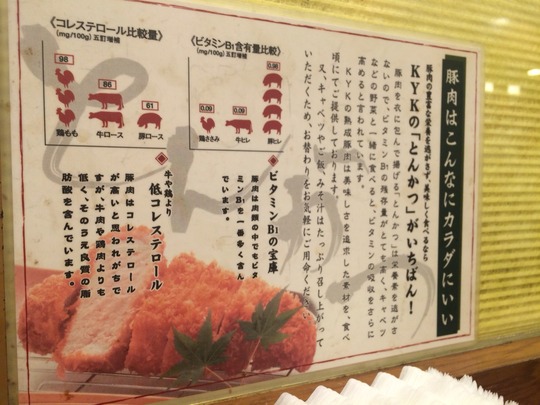 豚肉はこんなにカラダにいい
豚肉の豊富な栄養を逃がさず、美味しく食べるなら
KYKの「とんかつ」がいちばん!
豚肉を衣に包んで揚げる「とんかつ」は栄養素を逃がさ
ないので、ビタミンB1の残存量がとても高く、キャベツ
などの野菜と一緒に食べると、ビタミンの吸収をさらに
高めると言われています。
KYKの熟成豚肉は美味しさを追求した素材を、食べ
頃にてご提供しております。
又、キャベツやご飯、みそ汁はたっぷり召し上がって
いただくため、お替わりをお気軽にご用命ください。
《ビタミンB1含有量比較》
(mg/100g) 五訂増補
0.09
鶏ささみ
0.09
牛ヒレ
0.98
豚ヒレ
ビタミンB1の宝庫
豚肉は肉類の中でもビタ
ミンB1を一番多く含ん
でいます。
《コレステロール比較量》
(mg/100g) 五訂増補
98
鶏もも
86
牛ロース
61
豚ロース
牛や鶏より
低コレステロール
豚肉はコレステロール
が高いと思われがちで
すが、牛肉や鶏肉よりも
低く、そのうえ良質の脂
肪酸を含んでいます。
とんかつ